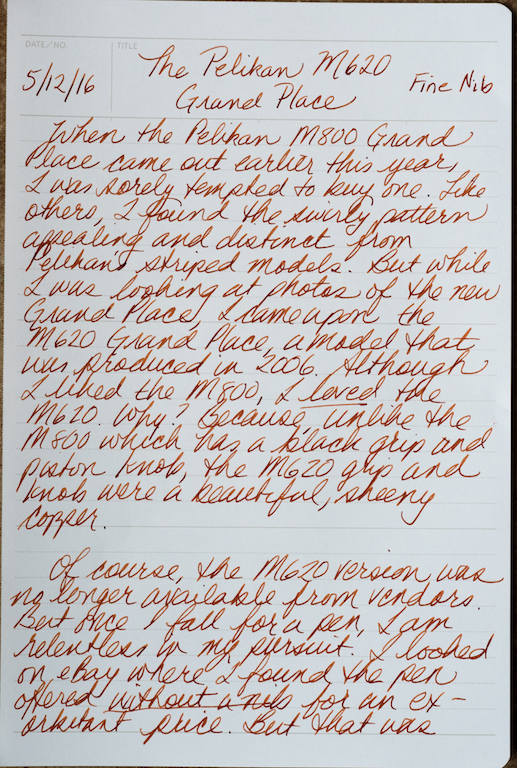 DATE/NO.
TITLE
5/12/16
The Pelikan M620
Grand Place
Fine Nib
When the Pelikan M800 Grand
Place came out earlier this year,
I was sorely tempted to buy one. Like
others, I found the swirly pattern
appealing and distinct from
Pelikan's striped models. But while
I was looking at photos of the new
Grand Place, I came upon the
M620 Grand Place, a model that
was produced in 2006. Although
I liked the M800, I loved the
M620. Why? Because, unlike the
M800 which has a black grip and
piston knob, the M620 grip and
knob were a beautiful, sheeny
copper.
Of course, the M620 version was
no longer available from vendors.
But once I fall for a pen, I am
relentless in my pursuit. I looked
on eBay where I found the pen
offered without a nib for an ex-
orbitant price. But that was